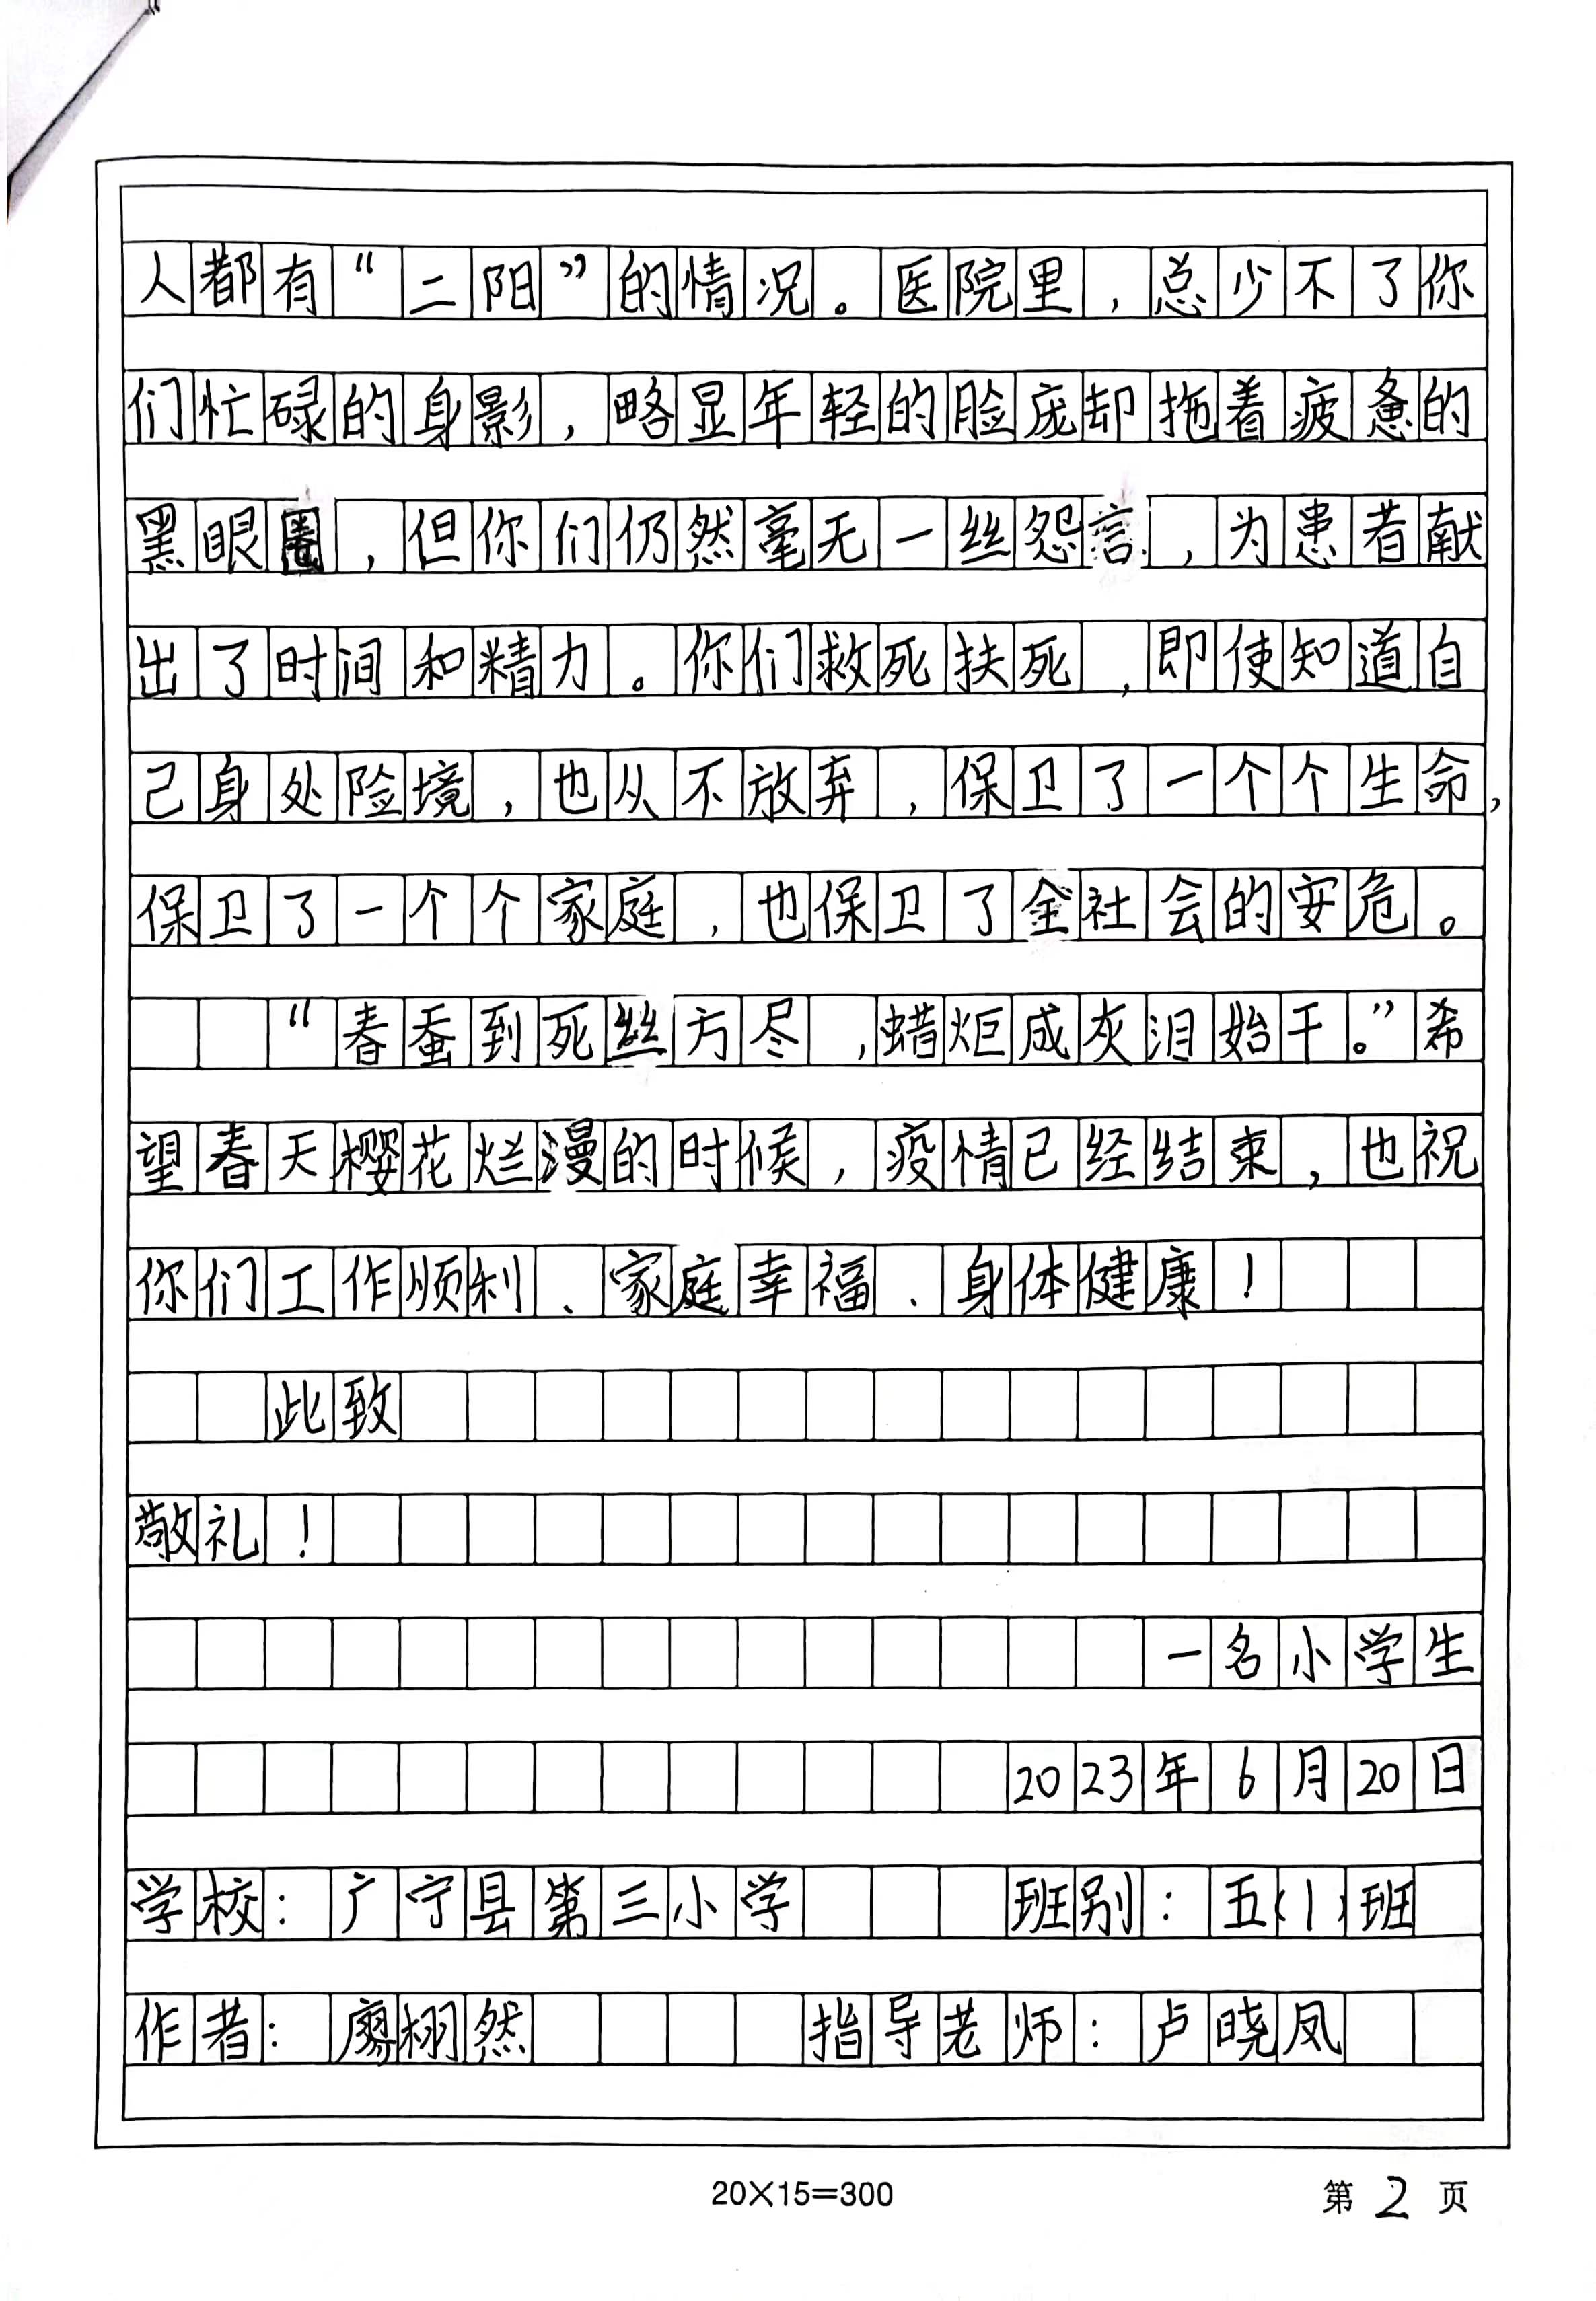 人都有“二阳”的情况。医院里，总少不了你
们忙碌的身影，略显年轻的脸庞却拖着疲惫的
黑眼圈，但你们仍然毫无一丝怨言，为患者献
出了时间和精力。你们救死扶死，即使知道自
己身处险境，也从不放弃，保卫了一个个生命，
保卫了一个个家庭，也保卫了全社会的安危。
“春蚕到死丝方尽，蜡炬成灰泪始干。”希
望春天樱花烂漫的时候，疫情已经结束，也祝
你们工作顺利、家庭幸福、身体健康！
此致
敬礼！
一名小学生
2023年6月20日
学校：广宁县第三小学 班别：五（1）班
作者：廖栩然 指导老师：卢晓凤
20×15=300 第2页